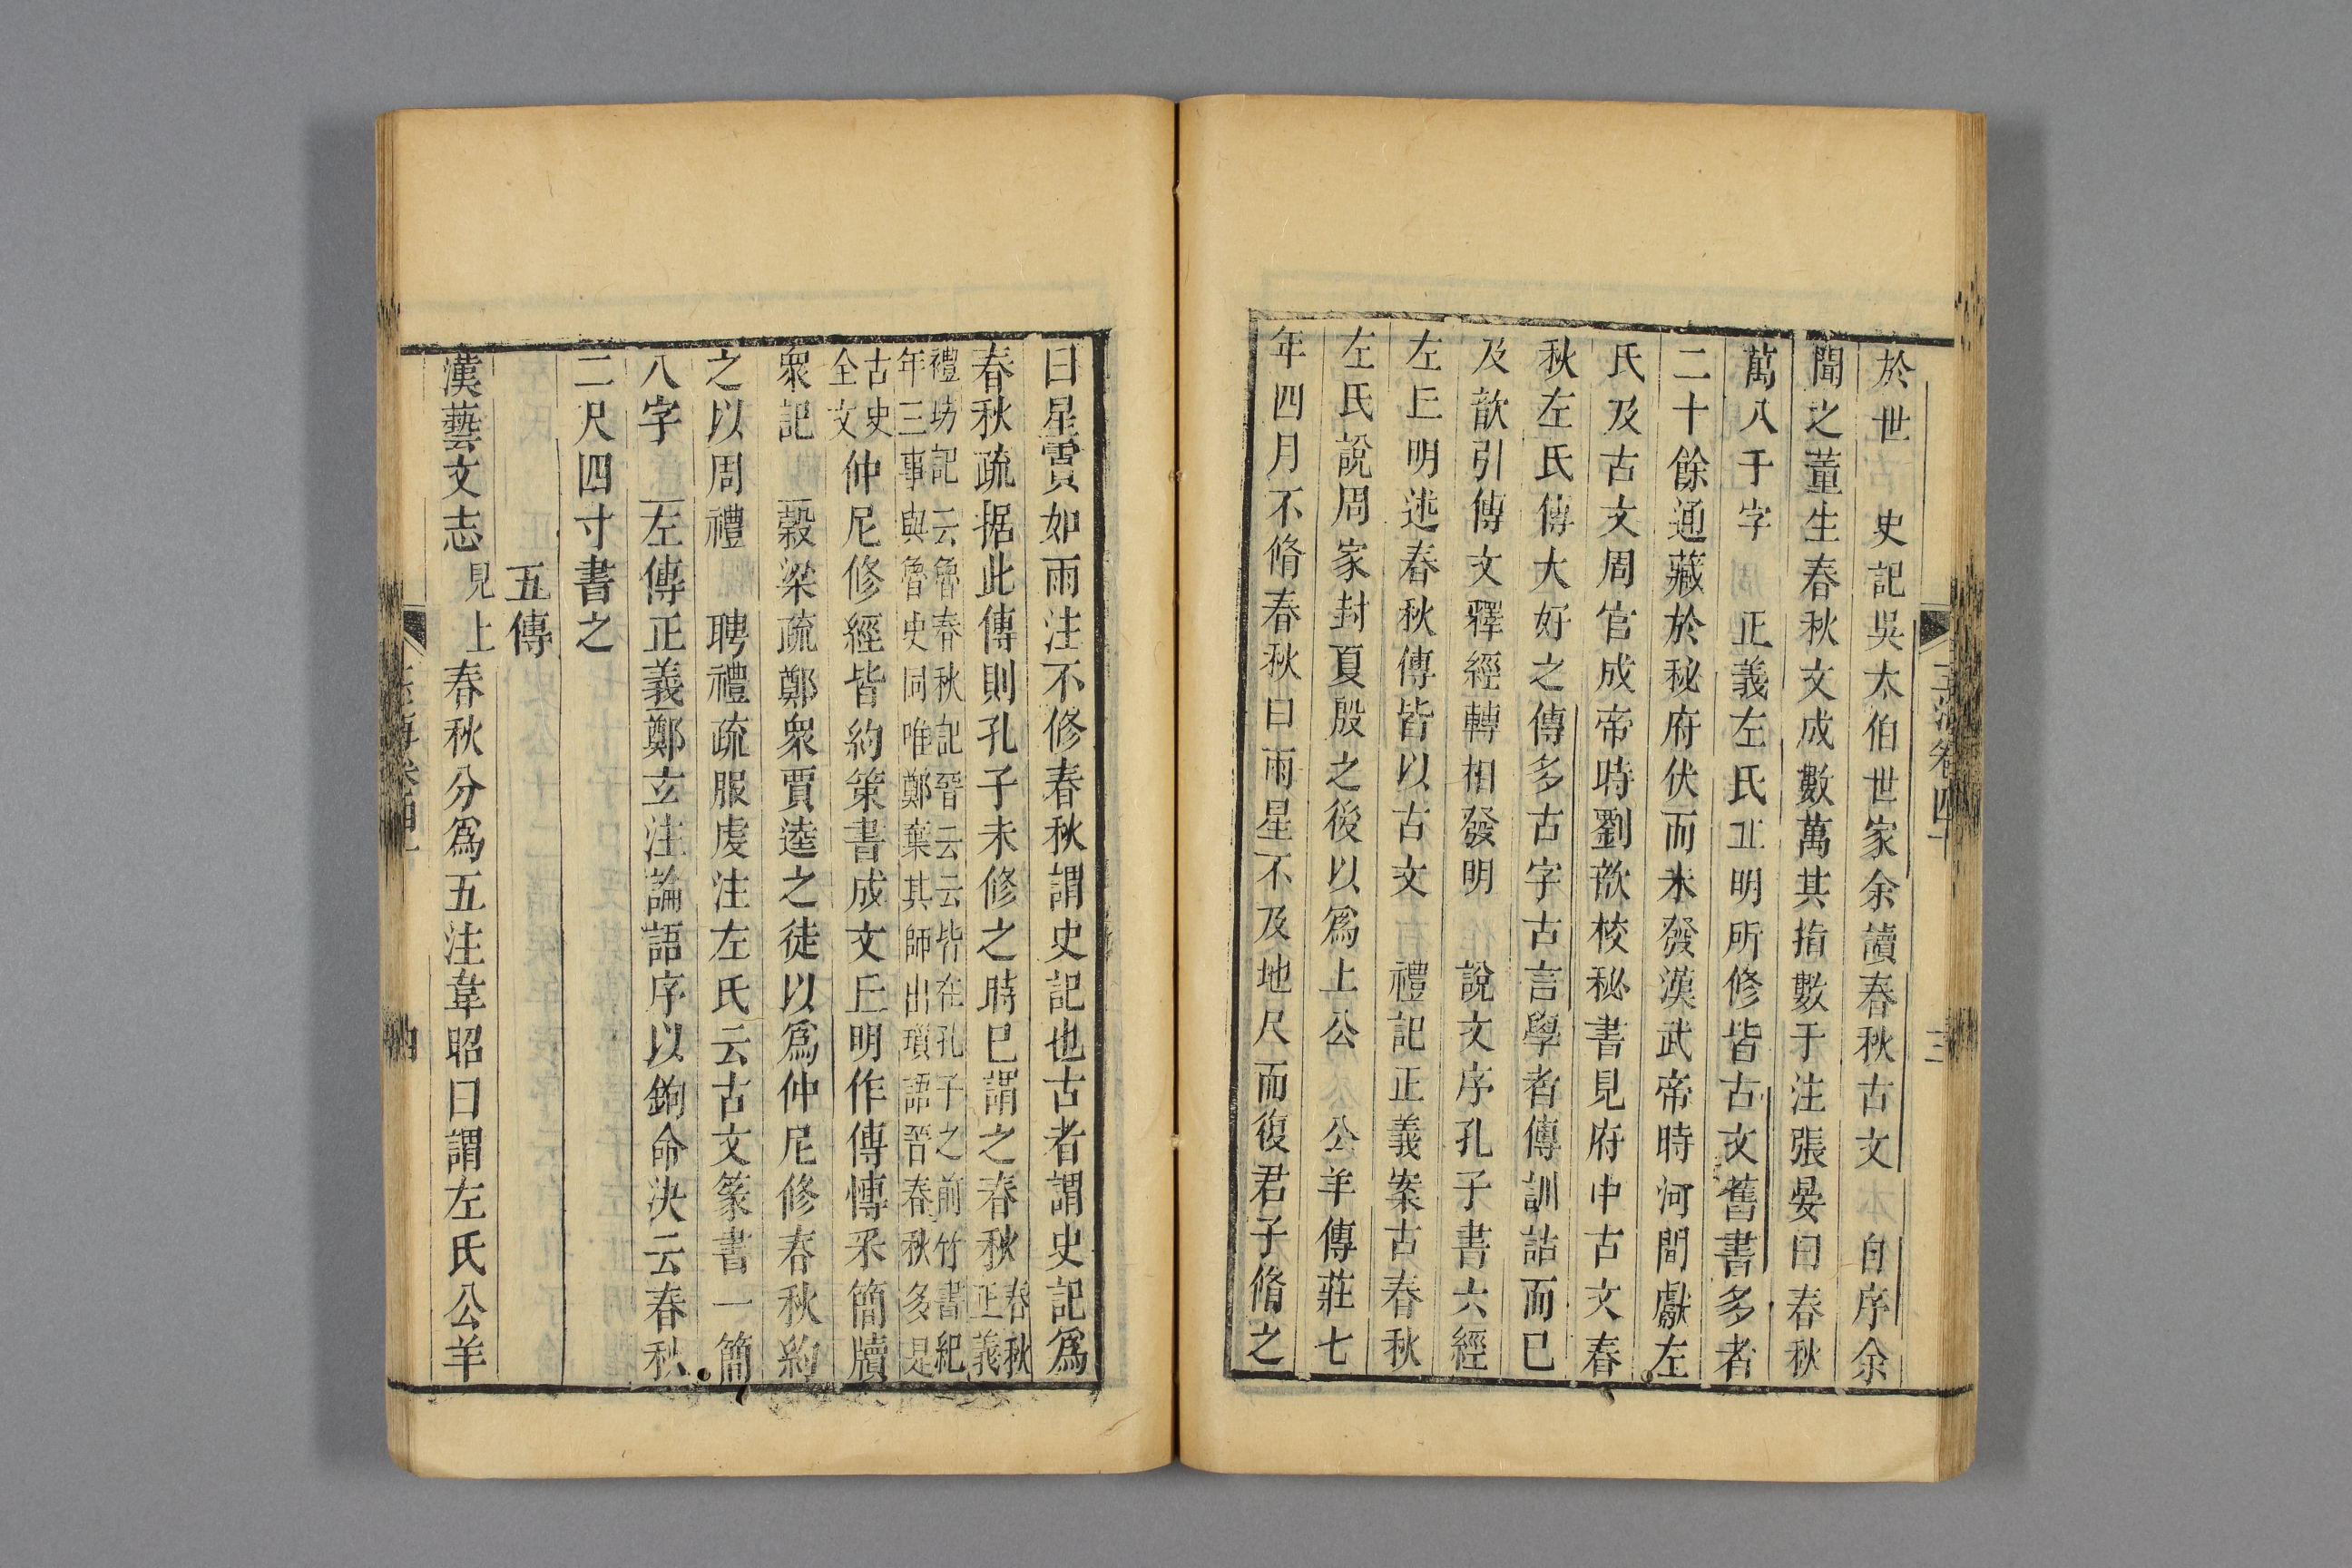 於世 史記吳太伯世家余讀春秋古文 自序余
聞之董生春秋文成數萬其指數于注張晏曰春秋
萬八千字 正義左氏丘明所修皆古文舊書多者
二十餘通藏於秘府伏而未發漢武帝時河間獻左
氏及古文周官成帝時劉歆校秘書見府中古文春
秋左氏傳大好之傳多古字古言學者傳訓詁而已
及歆引傳文釋經轉相發明 說文序孔子書六經
左丘明述春秋傳皆以古文 禮記正義案古春秋
左氏說周家封夏殷之後以爲上公 公羊傳莊七
年四月不脩春秋曰雨星不及地尺而復君子脩之
曰星霣如雨注不修春秋謂史記也古者謂史記爲
春秋疏据此傳則孔子未修之時已謂之春秋春秋正義
禮坊記云魯春秋記晉云云皆在孔子之前竹書紀
年三事與魯史同唯鄭棄其師出瑣語晉春秋多足
古史
全文
仲尼修經皆約策書成文丘明作傳慱采簡牘
衆記 穀梁疏鄭衆賈逵之徒以爲仲尼修春秋約
之以周禮 聘禮疏服虔注左氏云古文篆書一簡
八字 左傳正義鄭玄注論語序以鉤命決云春秋
二尺四寸書之
五傳
漢藝文志見上春秋分爲五注韋昭曰謂左氏公羊
卷四
三